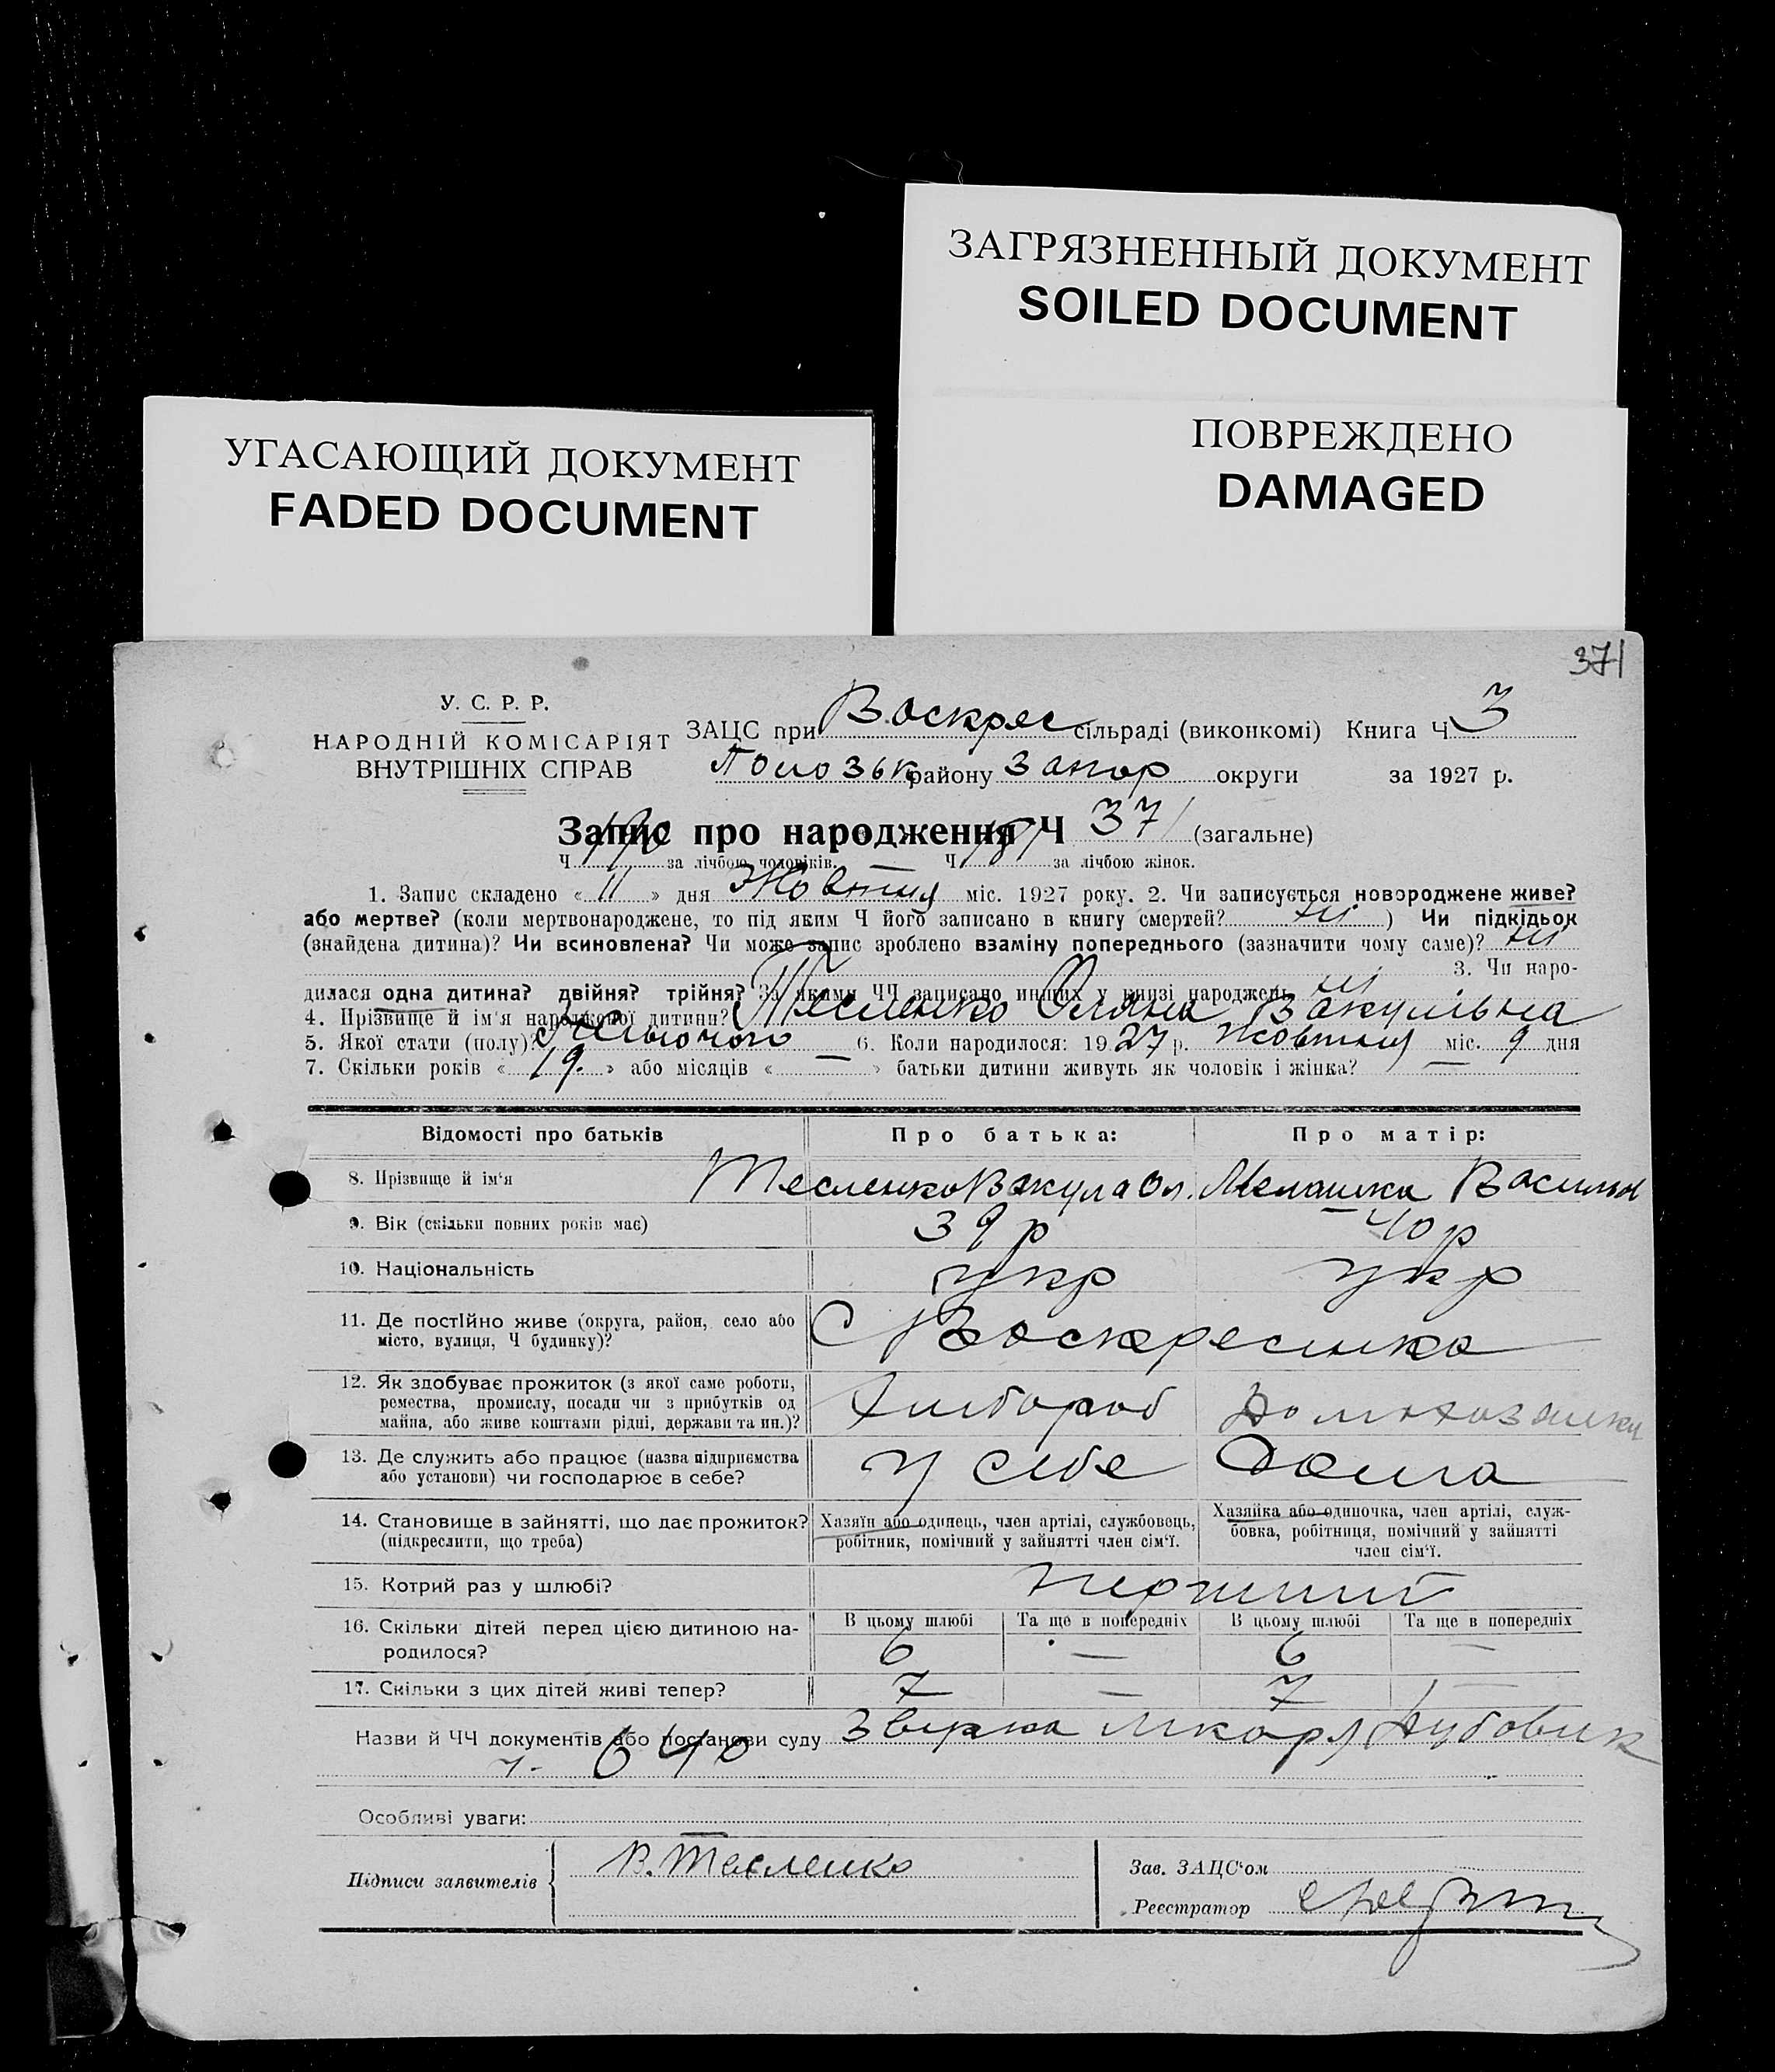 ЗАГРЯЗНЕННЫЙ ДОКУМЕНТ
SOILED DOCUMENT
ПОВРЕЖДЕНО
DAMAGED
УГАСАЮЩИЙ ДОКУМЕНТ
FADED DOCUMENT
371
У. С. Р. Р.
НАРОДНІЙ КОМІСАРІЯТ
ВНУТРІШНІХ СПРАВ
ЗАЦС при Воскрес сільраді (виконкомі) Книга Ч. 3
Пологзьк району Запор округи за 1927 р.
Запис про народження Ч 371 (загальне)
Ч 190 за лічбою чоловіків. — Ч 181 за лічбою жінок.
1. Запис складено « 11 » дня Жовтня міс. 1927 року. 2. Чи записується новороджене живе?
або мертве? (коли мертвонароджене, то під яким Ч його записано в книгу смертей? ні ) Чи підкідьок
(знайдена дитина)? Чи всиновлена? Чи може запис зроблено взаміну попереднього (зазначити чому саме)? ні
3. Чи наро-
дилася одна дитина? двійня? трійня? За якими ЧЧ записано инших у книзі народжень ні
4. Прізвище й ім'я народженої дитини? Тесленко Оляна Вакулівна
5. Якої стати (полу)? Жіночого — 6. Коли народилося: 1927 р. жовтня міс. 9 дня
7. Скільки років « 19. » або місяців « — » батьки дитини живуть як чоловік і жінка? —
Відомості про батьків Про батька: Про матір:
8. Прізвище й ім'я Тесленко Вакула Ол. Мелашка Васильн
9. Вік (скільки повних років має) 39 р 40 р
10. Національність укр укр
11. Де постійно живе (округа, район, село або
місто, вулиця, Ч будинку)? С Воскресинка
12. Як здобуває прожиток (з якої саме роботи,
ремества, промислу, посади чи з прибутків од
майна, або живе коштами рідні, держави та ин.)? Хлібороб Домохазяйка
13. Де служить або працює (назва підприємства
або установи) чи господарює в себе? у себе Дома
14. Становище в зайнятті, що дає прожиток?
(підкреслити, що треба)
Хазяїн або одинець, член артілі, службовець,
робітник, помічний у зайнятті член сім'ї.
Хазяйка або одиночка, член артілі, служ-
бовка, робітниця, помічний у зайнятті
член сім'ї.
15. Котрий раз у шлюбі? перший
16. Скільки дітей перед цією дитиною на-
родилося?
В цьому шлюбі Та ще в попередніх В цьому шлюбі Та ще в попередніх
6 — 6 —
17. Скільки з цих дітей живі тепер? 7 — 7 —
Назви й ЧЧ документів або постанови суду
ч. 640
Особливі уваги:
Підписи заявителів В. Тесленко
Зав. ЗАЦС'ом
Реєстратор